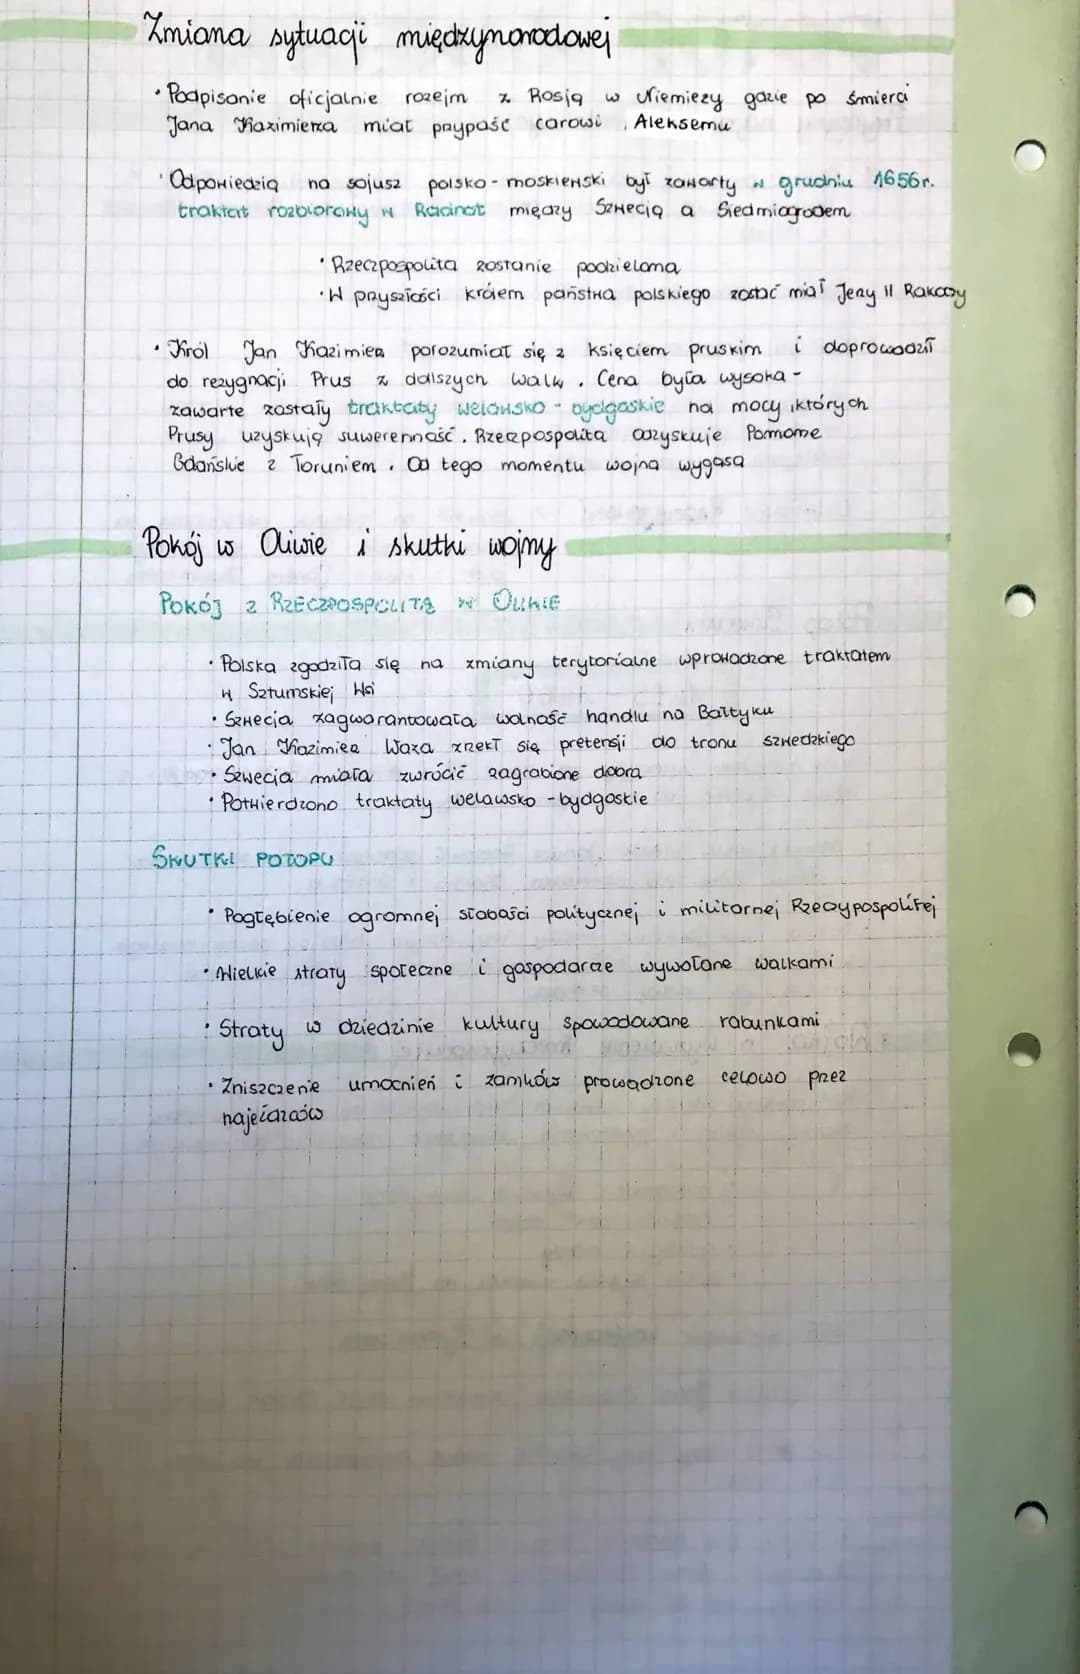 Zmiana sytuacji międzynarodowej
• Podpisanie oficjalnie rozejm z Rosją w Niemieży gdzie po śmierci
Jana Kazimierza miał przypaść carowi Aleksemu
• Odpowiedzią na sojusz polsko-moskiewski był zawarty w grudniu 1656r.
traktat rozbiorowy w Radnot między Szwecją a Siedmiogrodem
• Rzeczpospolita zostanie podzielona
• W przyszłości królem państwa polskiego zostać miał Jerzy II Rakoczy
• Król Jan Kazimierz porozumiał się z księciem pruskim i doprowadził
do rezygnacji Prus z dalszych walk. Cena była wysoka -
zawarte zostały traktaty welawsko-bydgoskie na mocy których
Prusy uzyskują suwerenność. Rzeczpospolita odzyskuje Pomorze
Gdańskie z Toruniem. Od tego momentu wojna wygasa
Pokój w Oliwie i skutki wojny
POKÓJ Z RZECZPOSPOLITĄ W OLIWIE
• Polska zgodziła się na zmiany terytorialne wprowadzone traktatem
w Sztumskiej Wsi
• Szwecja zagwarantowała wolność handlu na Bałtyku
• Jan Kazimierz Waza zrzekł się pretensji do tronu szwedzkiego
• Szwecja miała zwrócić zagrabione dobra
• Potwierdzono traktaty welawsko-bydgoskie
SKUTKI POTOPU
• Pogłębienie ogromnej słabości politycznej i militarnej Rzeczypospolitej
• Wielkie straty społeczne i gospodarcze wywołane walkami
• Straty w dziedzinie kultury spowodowane rabunkami
• Zniszczenie umocnień i zamków prowadzone celowo przez
najeźdźców